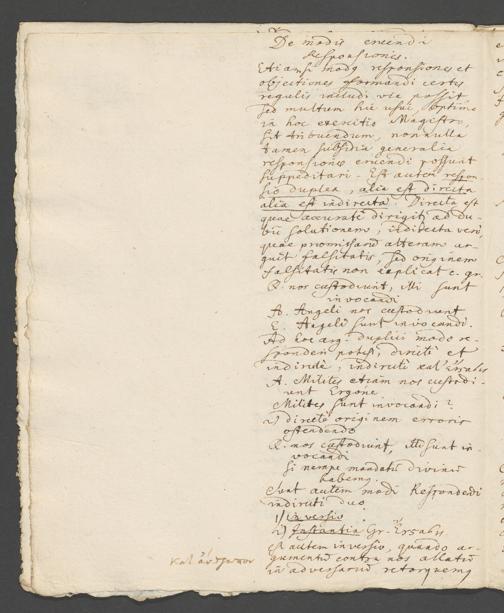 De modis eruendi
Responsiones.
Etiamsi modg responsiones et
objectiones formandi certis
regulis includi vix possit,
sed multum hic usui, optimo
in hoc exercitio Magistro,
sit tribuendum, nonnulla
tamen subsidia generalia
responsionis eruendi possunt
suppeditari. Est autem respon-
sio duplex, alia est directa
alia est indirecta. Directa est
quae accurate dirigit ad du-
bii solutionem, indirecta vero,
quae promissarū alteram ar-
guit falsitatis, sed originem
falsitatis non explicat e. gr.
Q. nos custodiunt, illi sunt
invocandi
A. Angeli nos custodiunt
E. Angeli sunt invocandi.
Ad hoc arg. duplici modo re-
sponderi potest, directe et
indirecte, indirecte
A. Milites etiam nos custodi-
unt Ergone
Milites sunt invocandi?
2) directe originem erroris
ostendendo
Q. nos custodiunt, illi sunt in-
vocandi
si nempe mandatū divinū
habemg.
Sunt autem modi Respondendi
indirecti duo
1) inversio
2) Instantia Gr.
est autem inversio, quando ar-
gumentū contra nos allatū
in adversariū retorquemg